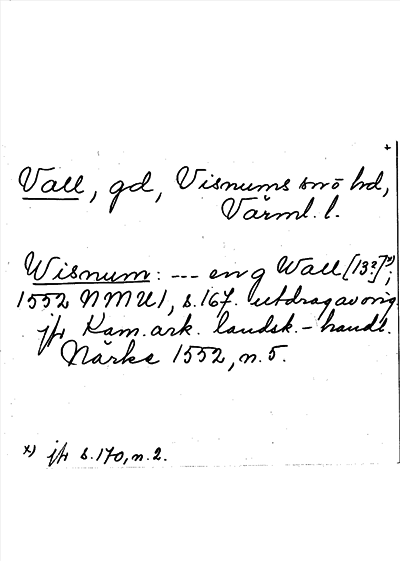 +
Vall, gd, Visnums snö hd,
Värml. l.
Wisnum: --- en g Wall [13?]x);
1552 NMU1, s.167. utdrag av orig.
jfr Kam.ark. landsk.-handl.
Närke 1552, n.5.
x) jfr s.170, n.2.